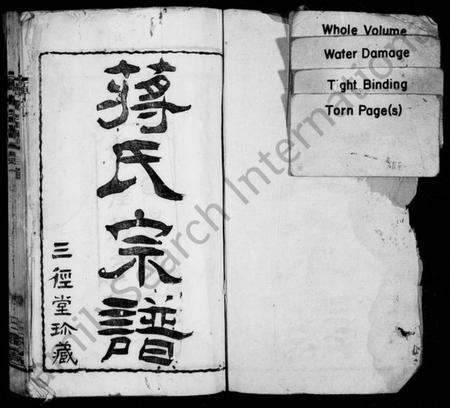 蒋氏宗譜
三徑堂珍藏
Whole Volume
Water Damage
Tight Binding
Torn Page(s)
FamilySearch International